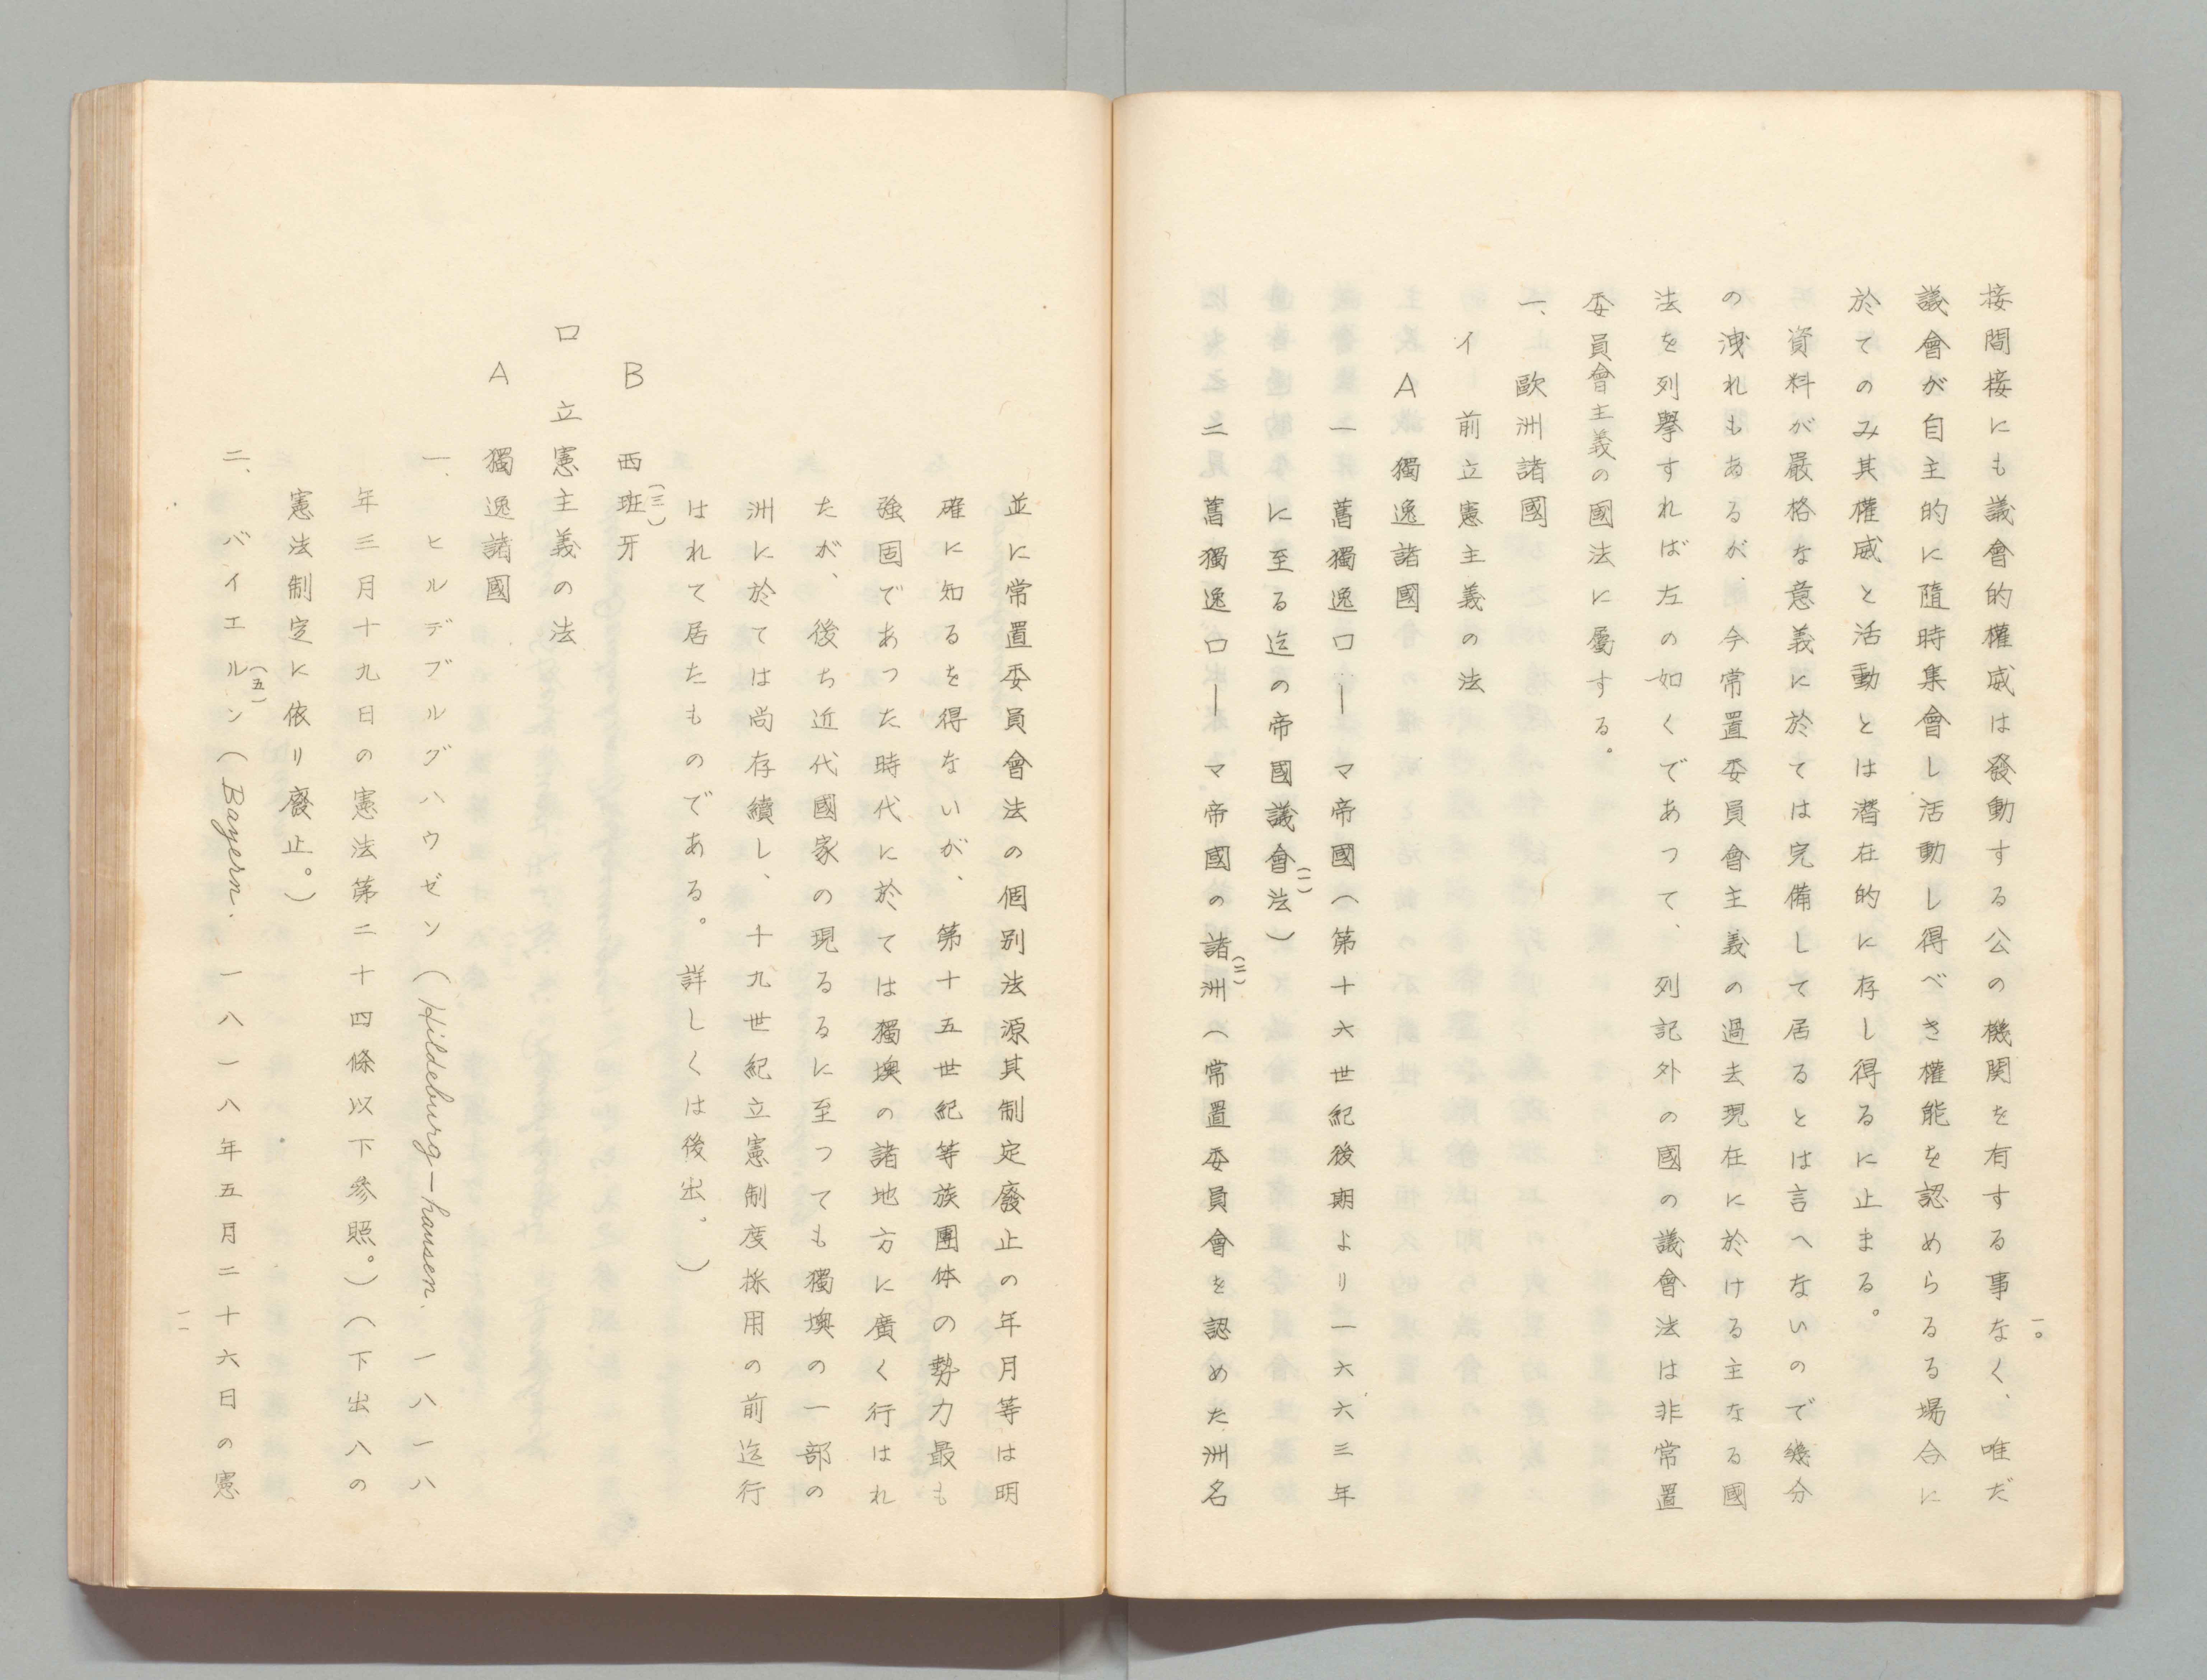 一〇
接間接にも議會的權威は發動する公の機関を有する事なく、唯だ
議會が自主的に隨時集會し活動し得べき權能を認めらるる場合に
於てのみ其權威と活動とは潜在的に存し得るに止まる。
資料が嚴格な意義に於ては完備して居るとは言へないので幾分
の洩れもあるが、今常置委員會主義の過去現在に於ける主なる國
法を列擧すれば左の如くであつて、列記外の國の議會法は非常置
委員會主義の國法に屬する。
一、歐洲諸國
イ 前立憲主義の法
A 獨逸諸國
一 舊獨逸ローマ帝國(第十六世紀後期より一六六三年
に至る迄の帝國議會法)(一)
二 舊獨逸ローマ帝國の諸洲(二)(常置委員會を認めた洲名
並に常置委員會法の個別法源其制定廢止の年月等は明
確に知るを得ないが、第十五世紀等族團体の勢力最も
強固であつた時代に於ては獨墺の諸地方に廣く行はれ
たが、後ち近代國家の現るるに至つても獨墺の一部の
洲に於ては尚存續し、十九世紀立憲制度採用の前迄行
はれて居たものである。詳しくは後出。)
B 西班牙(三)
ロ 立憲主義の法
A 獨逸諸國
一、ヒルデブルグハウゼン(Hildeburg-hausen. 一八一八
年三月十九日の憲法第二十四條以下参照。)(下出八の
憲法制定に依り廢止。)
二、バイエルン(五)(Bayern. 一八一八年五月二十六日の憲
一一